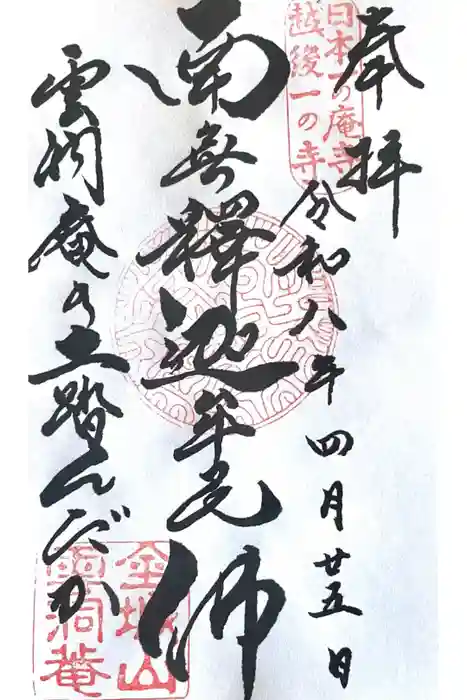 奉拝
日本一の庵寺
越後一の寺
令和八年四月廿五日
南無釋迦牟尼佛
雲洞庵の土踏んだか
金城山
雲洞菴